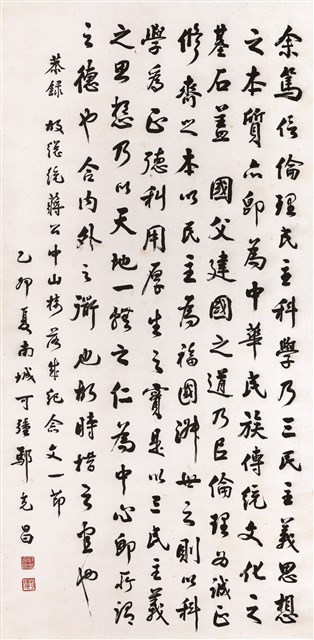 余篤信倫理民主科學乃三民主義思想
之本質亦即為中華民族傳統文化之
基石蓋 國父建國之道乃以倫理為誠正
修齊之本以民主為福國淑世之則以科
學為正德利用厚生之實是以三民主義
之思想乃以天地一體之仁為中心即所謂
之德也合內外之道也故時措之宜也
恭錄 故總統蔣公中山樓落成紀念文一節
乙卯夏南城可璋鄢克昌